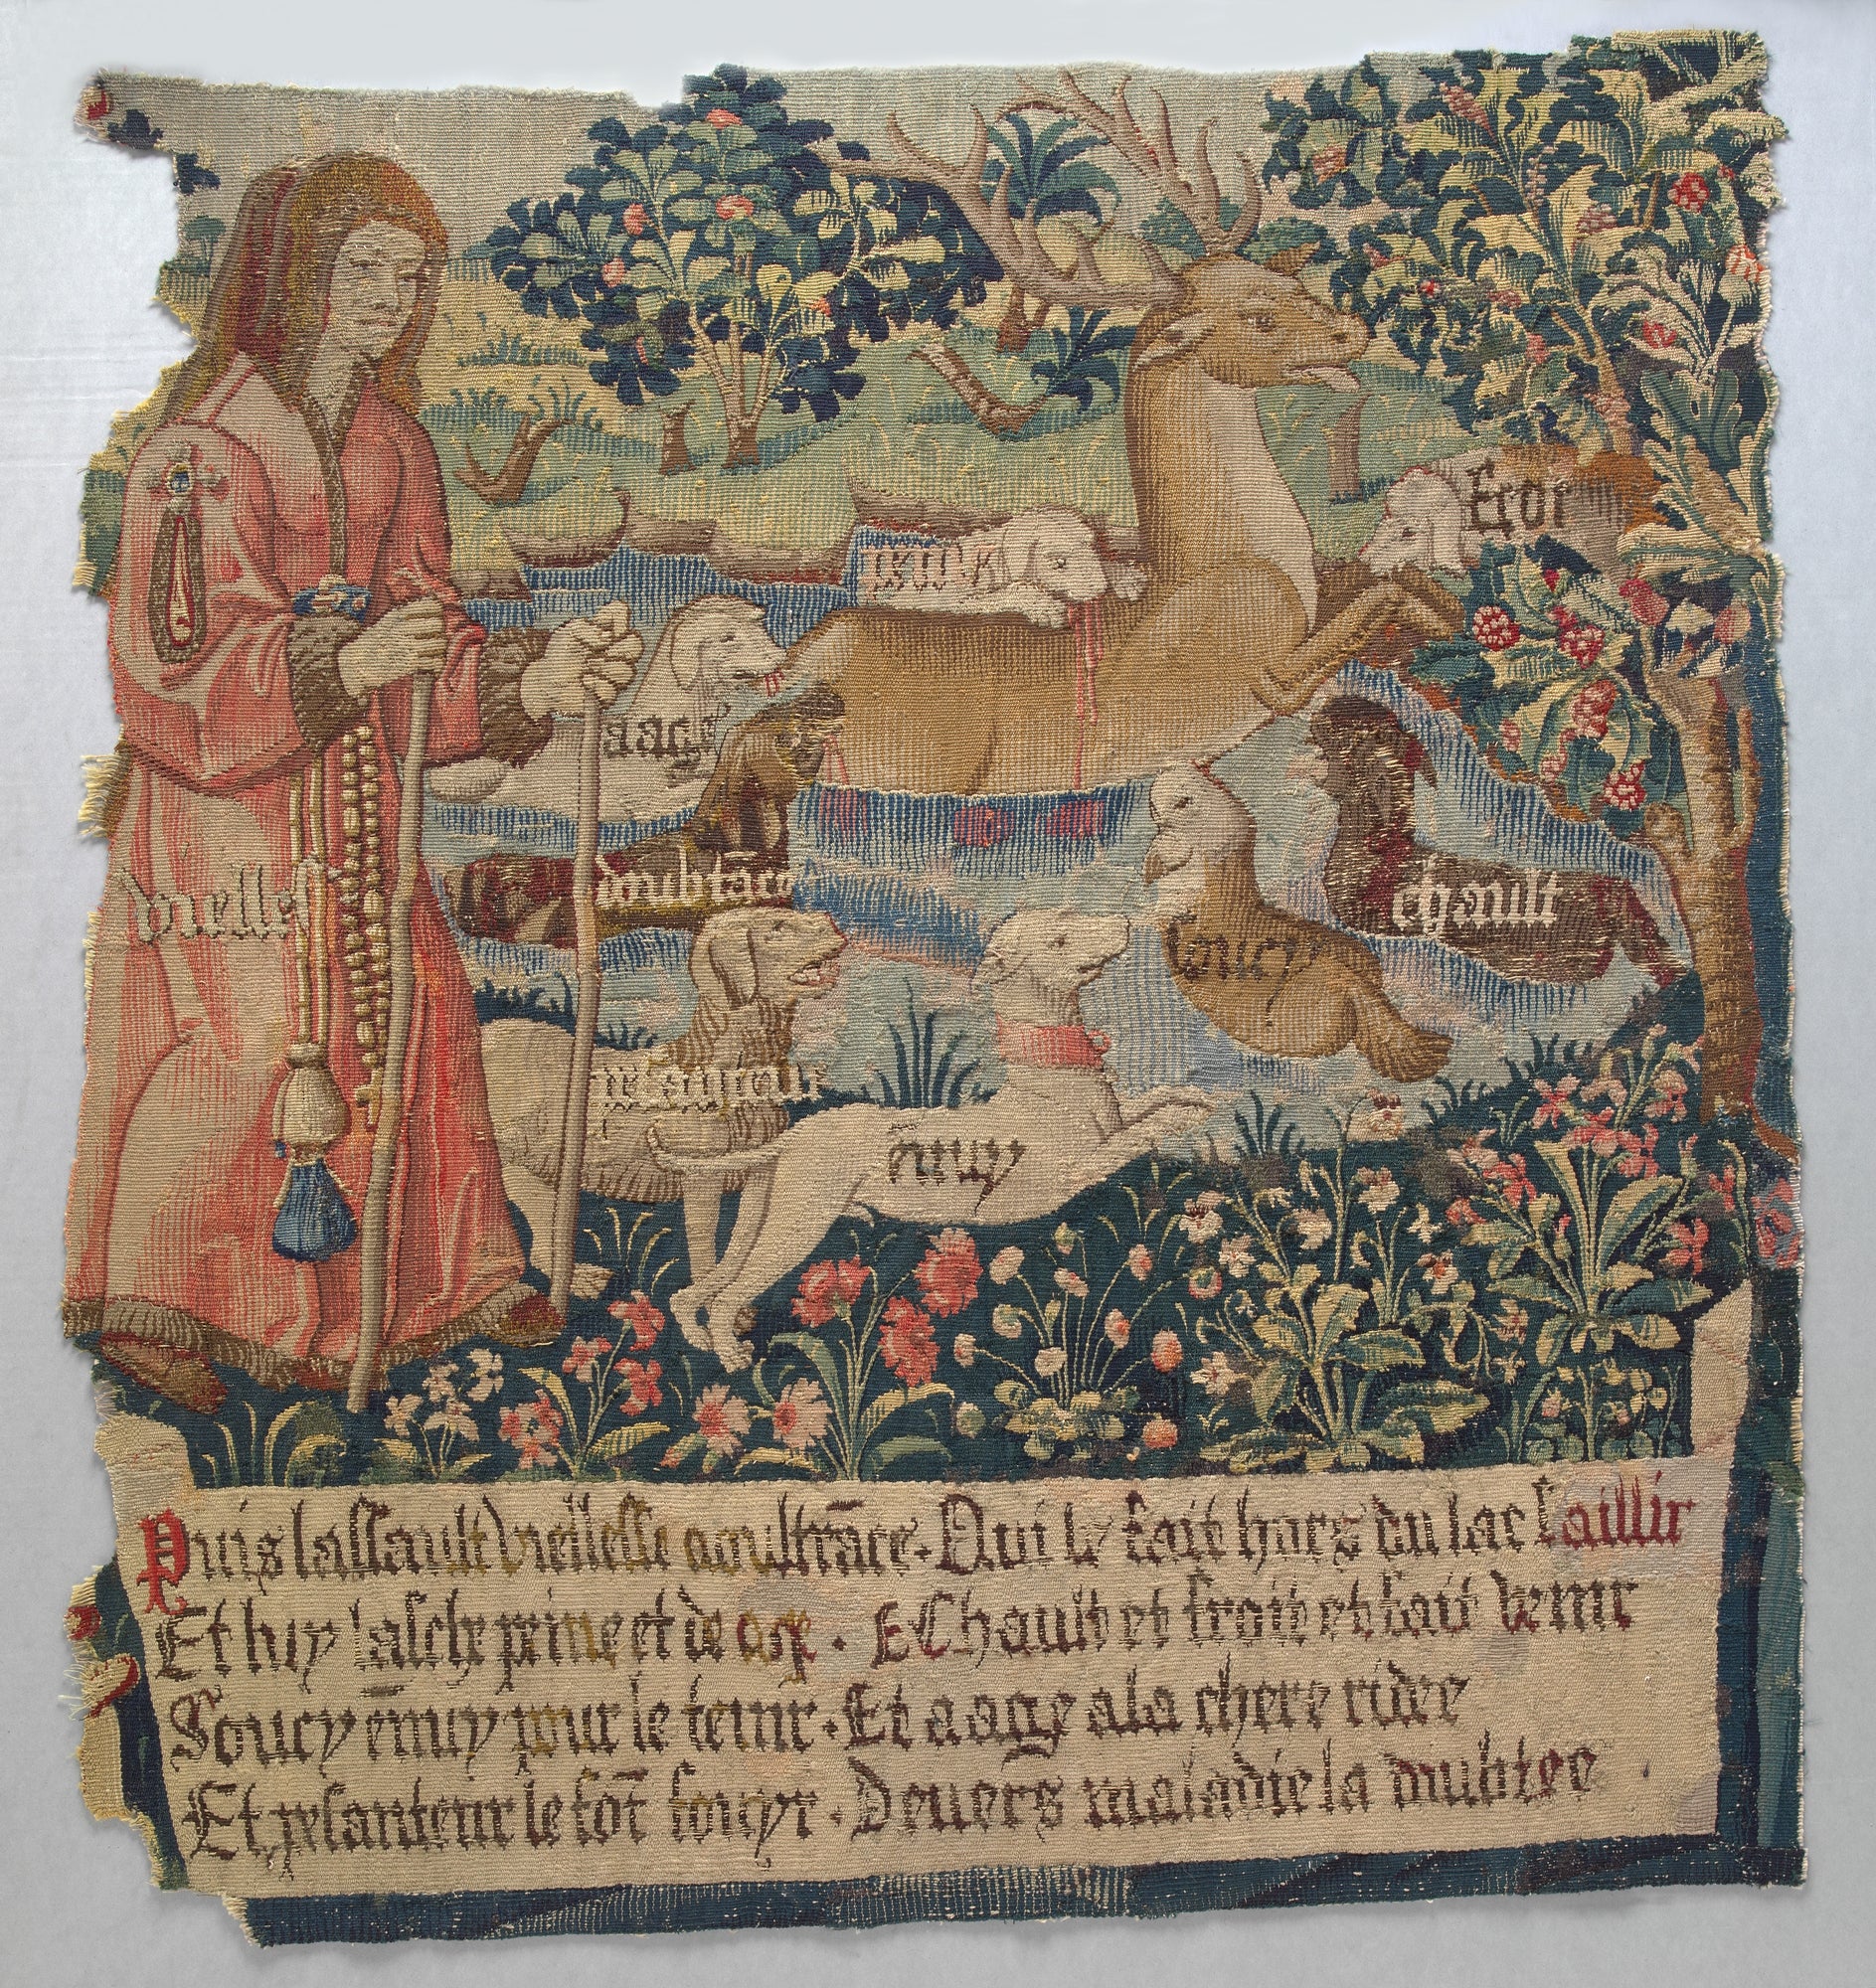 peine
Froit
aage
doubtãce
viellesse
chault
soucy
pesanteur
ẽnuy
Puis lassault viellesse a oultrãce · Qui le fait hors du lac saillir
Et luy lasche peine et de age · E Chault et froit et fait venir
Soucy ẽnuy pour le tenir · Et aage a la chere ridee
Et pesanteur le fõt fouyr · Devers maladie la doubtee